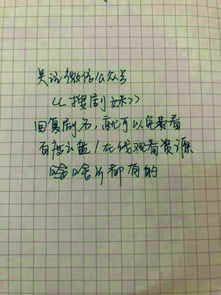 关注微信公众号
《搜剧妹》
回复剧名，就可以免费看
百度云盘/在线观看资源
啥啥片都有的